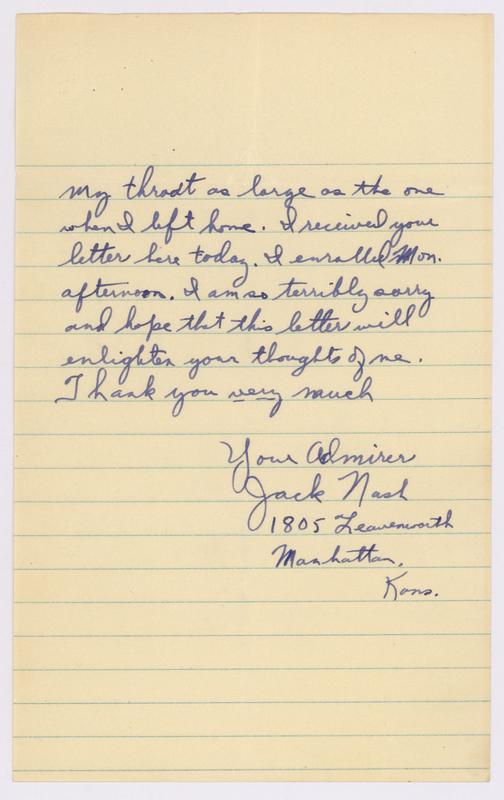 my throat as large as the one
when I left home. I received your
letter here today. I enrolled Mon.
afternoon. I am so terribly sorry
and hope that this letter will
enlighten your thoughts of me.
I hank you very much
Your Admirer
Jack Nash
1805 Leavenworth
Manhattan,
Kans.